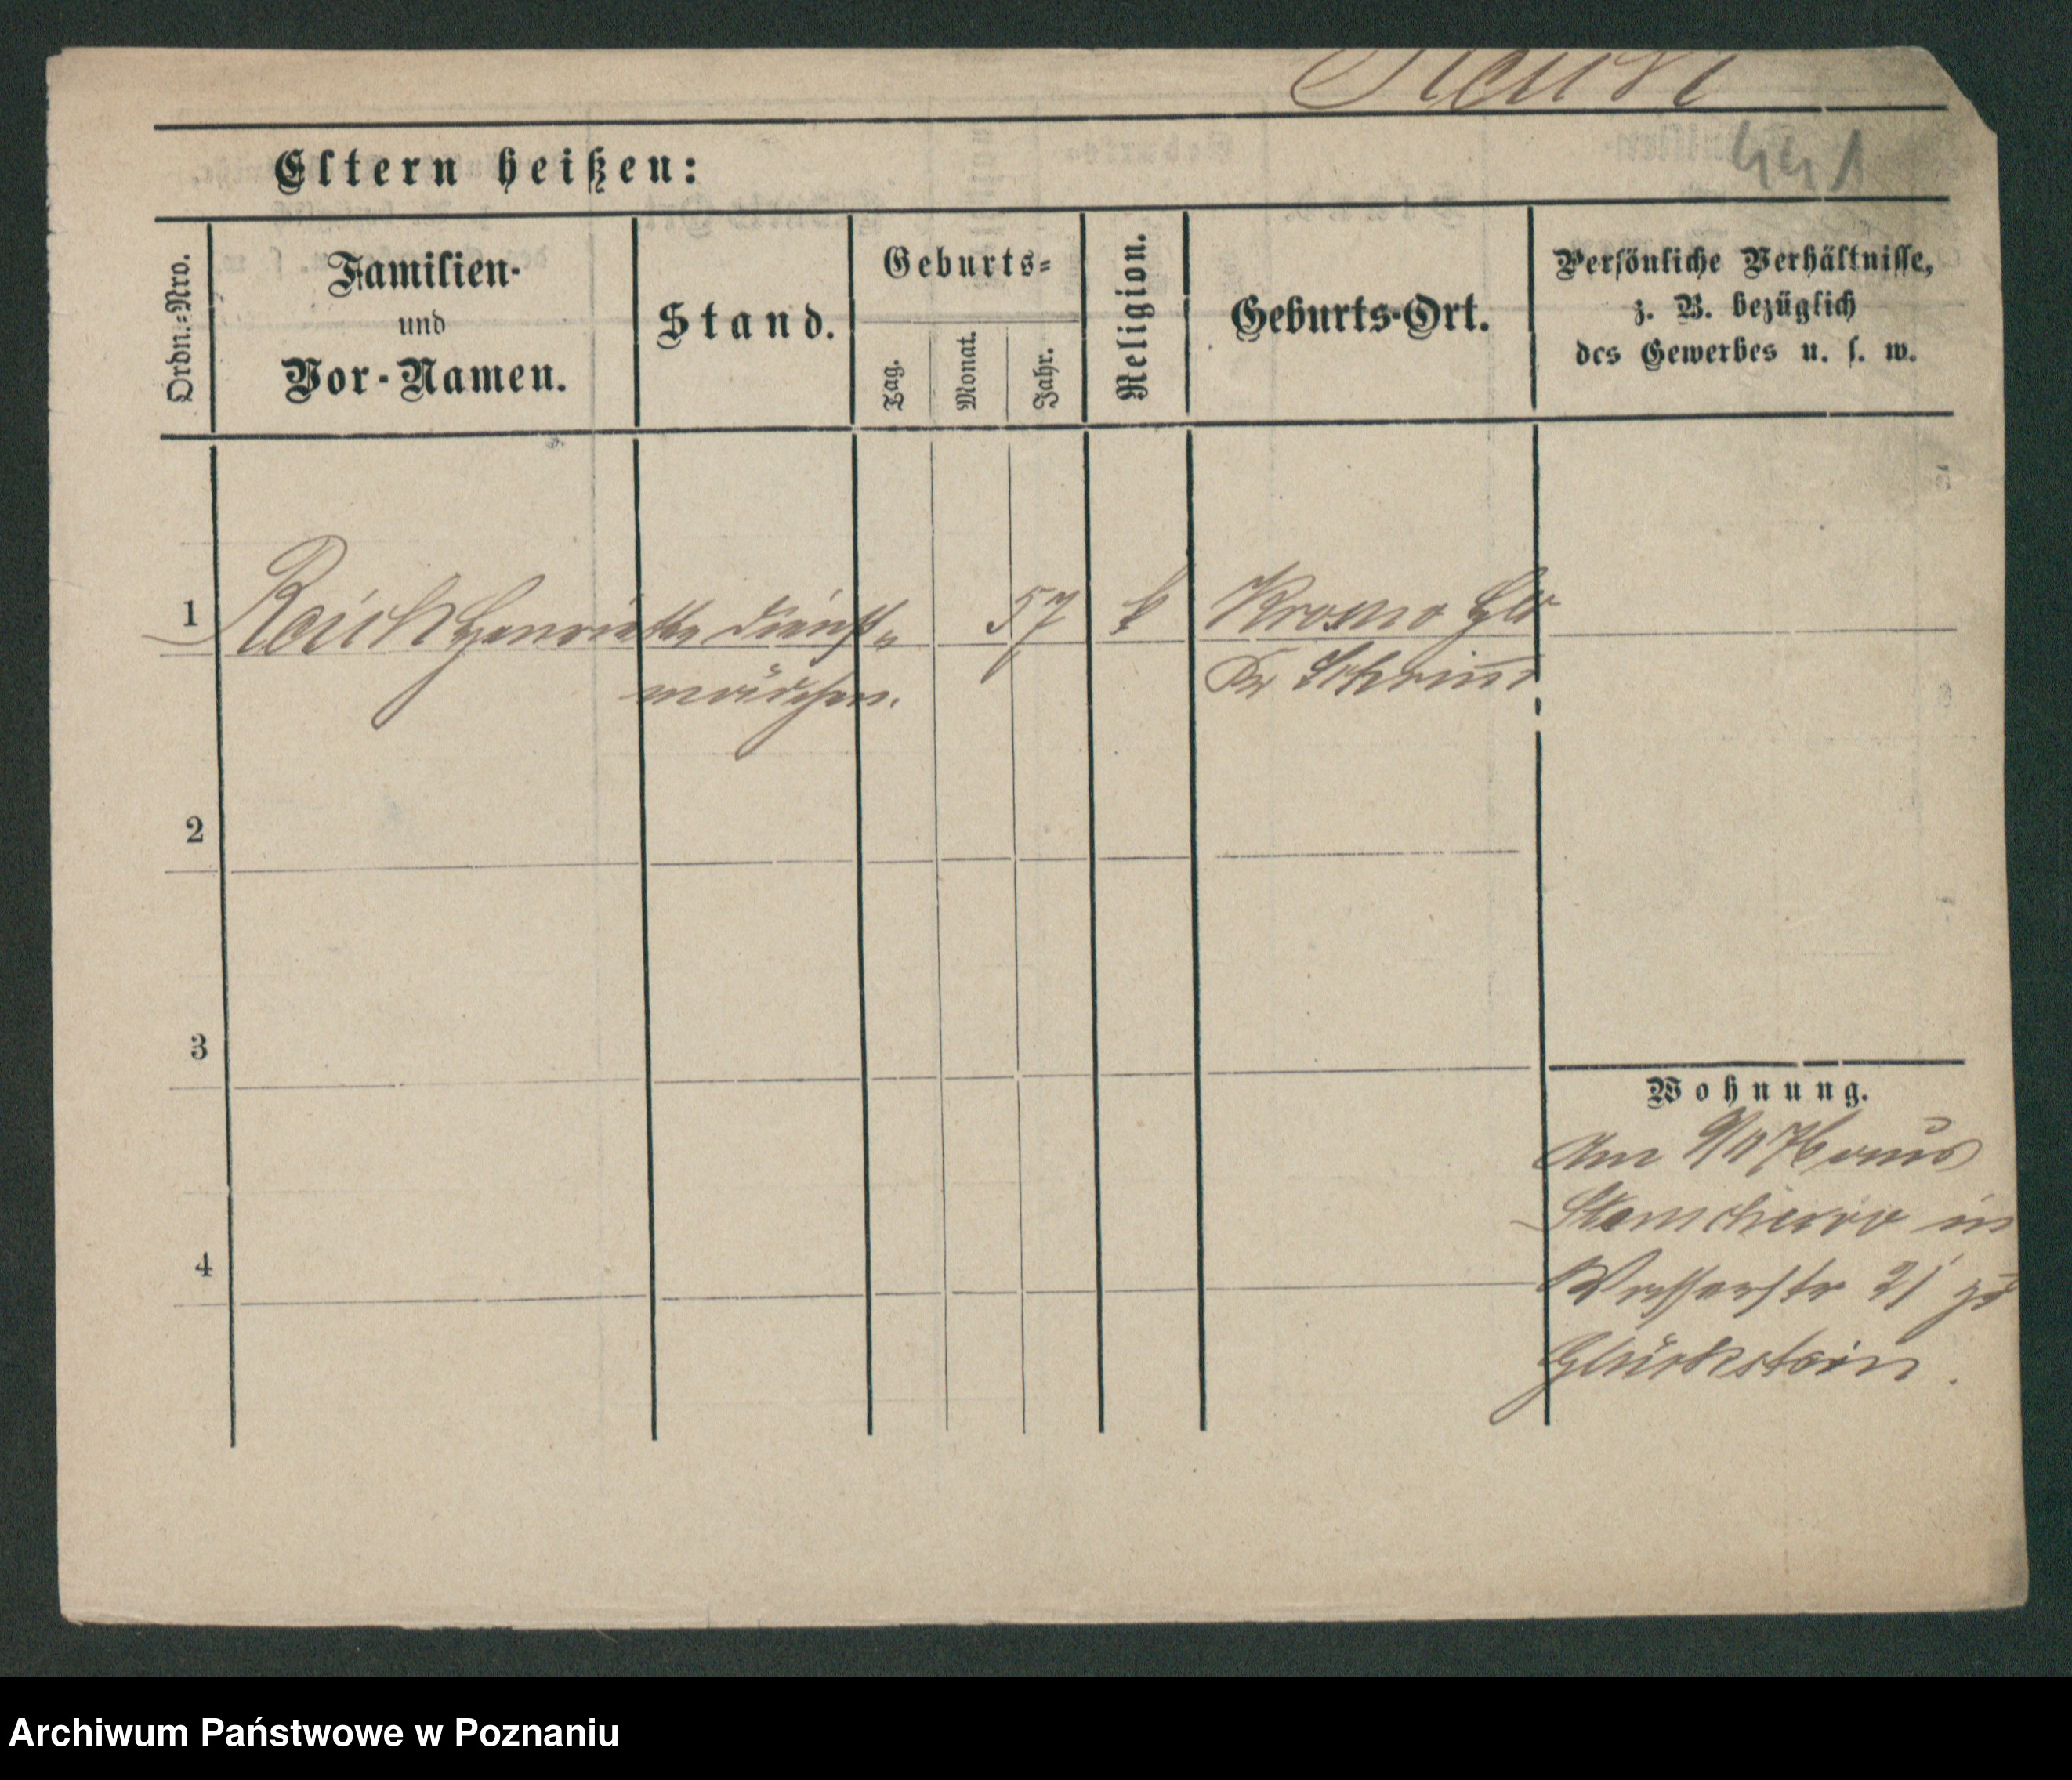 Reich
441
Eltern heißen:
Ordn.=Nro.
Familien-
und
Vor-Namen.
Stand.
Geburts=
Tag.
Monat.
Jahr.
Religion.
Geburts-Ort.
Persönliche Verhältnisse,
z. B. bezüglich
des Gewerbes u. s. w.
1 Reich Henriette Dienst= 57 k Krosno Hld
mädchen. Kr Schrimm
2
3
4
Wohnung.
Am 9/11 76 aus
in
Wasserstr 21 
Glückstein.
Archiwum Państwowe w Poznaniu